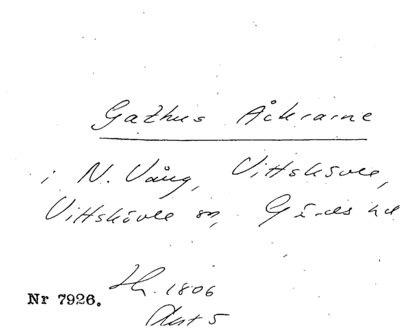 Gathus Åkrarne
i N. Vång, Vittskövle,
Vittskövle sn, Gärds hd
Hh. 1806
Akt 5
Nr 7926.